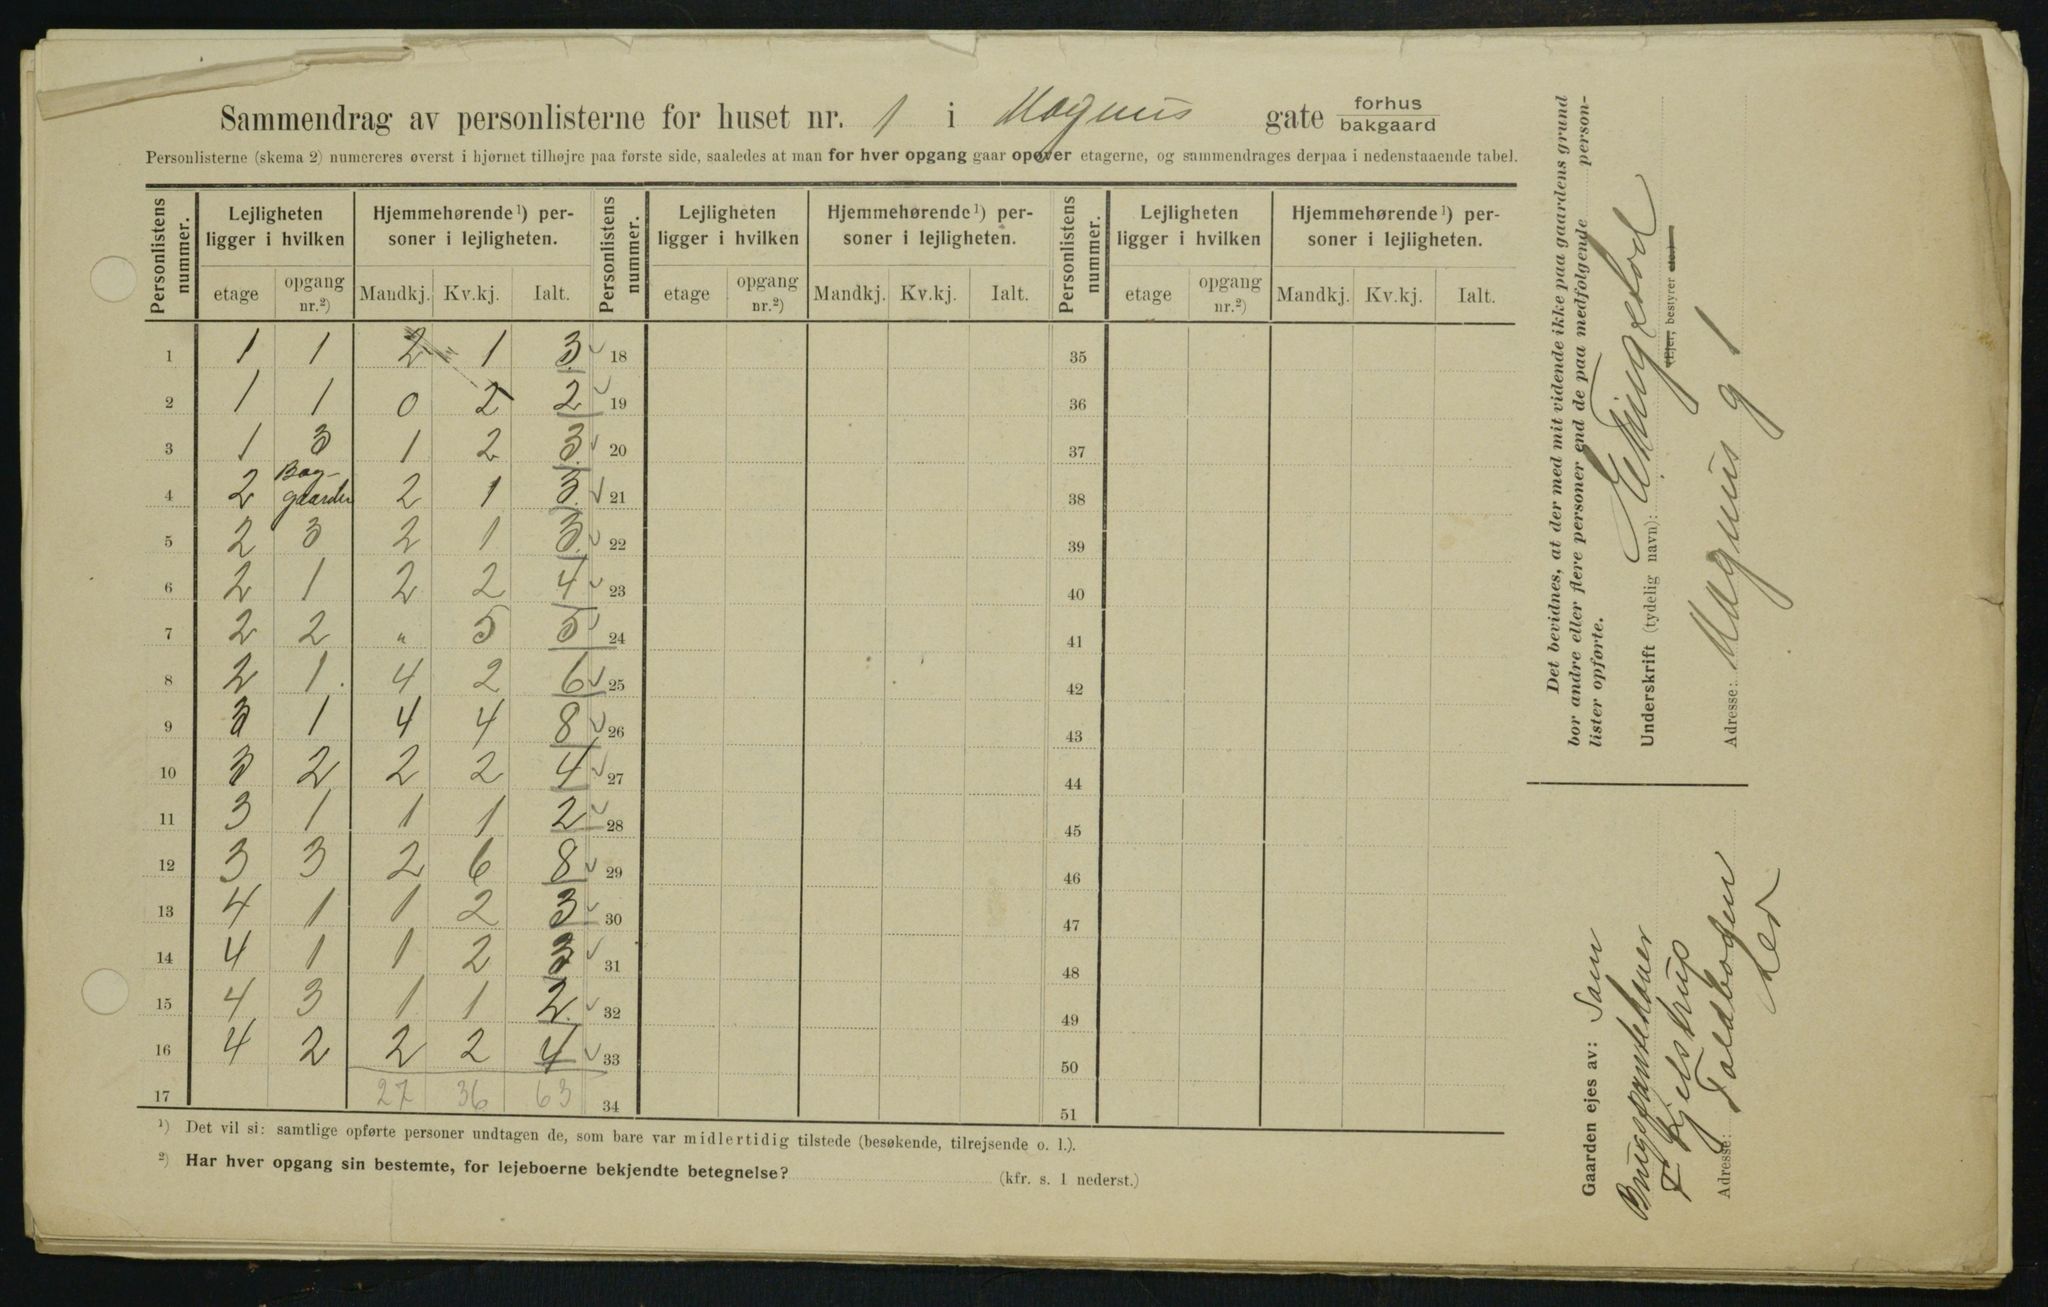 Sammendrag av personlisterne for huset nr. 1 i Magnus gate forhus bakgaard
Personlisterne (skema 2) numereres øverst i hjørnet tilhøjre paa første side, saaledes at man for hver opgang gaar opover etagerne, og sammendrages derpaa i nedenstaaende tabel.
Personlistens nummer. Lejligheten ligger i hvilken Hjemmehørende ¹) personer i lejligheten. Personlistens nummer. Lejligheten ligger i hvilken Hjemmehørende ¹) personer i lejligheten. Personlistens nummer. Lejligheten ligger i hvilken Hjemmehørende ¹) personer i lejligheten.
etage opgang nr.²) Mandkj. Kv.kj. Ialt. etage opgang nr.²) Mandkj. Kv.kj. Ialt. etage opgang nr.²) Mandkj. Kv.kj. Ialt.
1 1 1 2 1 3 18 35
2 1 1 0 2 2 19 36
3 1 3 1 2 3 20 37
4 2 Bag-gaarden 2 1 3 21 38
5 2 3 2 1 3 22 39
6 2 1 2 2 4 23 40
7 2 2 " 5 5 24 41
8 2 1 4 2 6 25 42
9 3 1 4 4 8 26 43
10 3 2 2 2 4 27 44
11 3 1 1 1 2 28 45
12 3 3 2 6 8 29 46
13 4 1 1 2 3 30 47
14 4 1 1 2 3 31 48
15 4 3 1 1 2 32 49
16 4 2 2 2 4 33 50
17 27 36 63 34 51
¹) Det vil si: samtlige opførte personer undtagen de, som bare var midlertidig tilstede (besøkende, tilrejsende o. l.).
²) Har hver opgang sin bestemte, for lejeboerne bekjendte betegnelse? (kfr. s. 1 nederst.)
Det bevidnes, at der med mit vidende ikke paa gaardens grund
bor andre eller flere personer end de paa medfølgende person-
lister opførte.
Underskrift (tydelig navn):
(Ejer, bestyrer etc.)
Adresse: Magnus g 1
Gaarden ejes av: Sam
F Kjelstrup
Adresse: